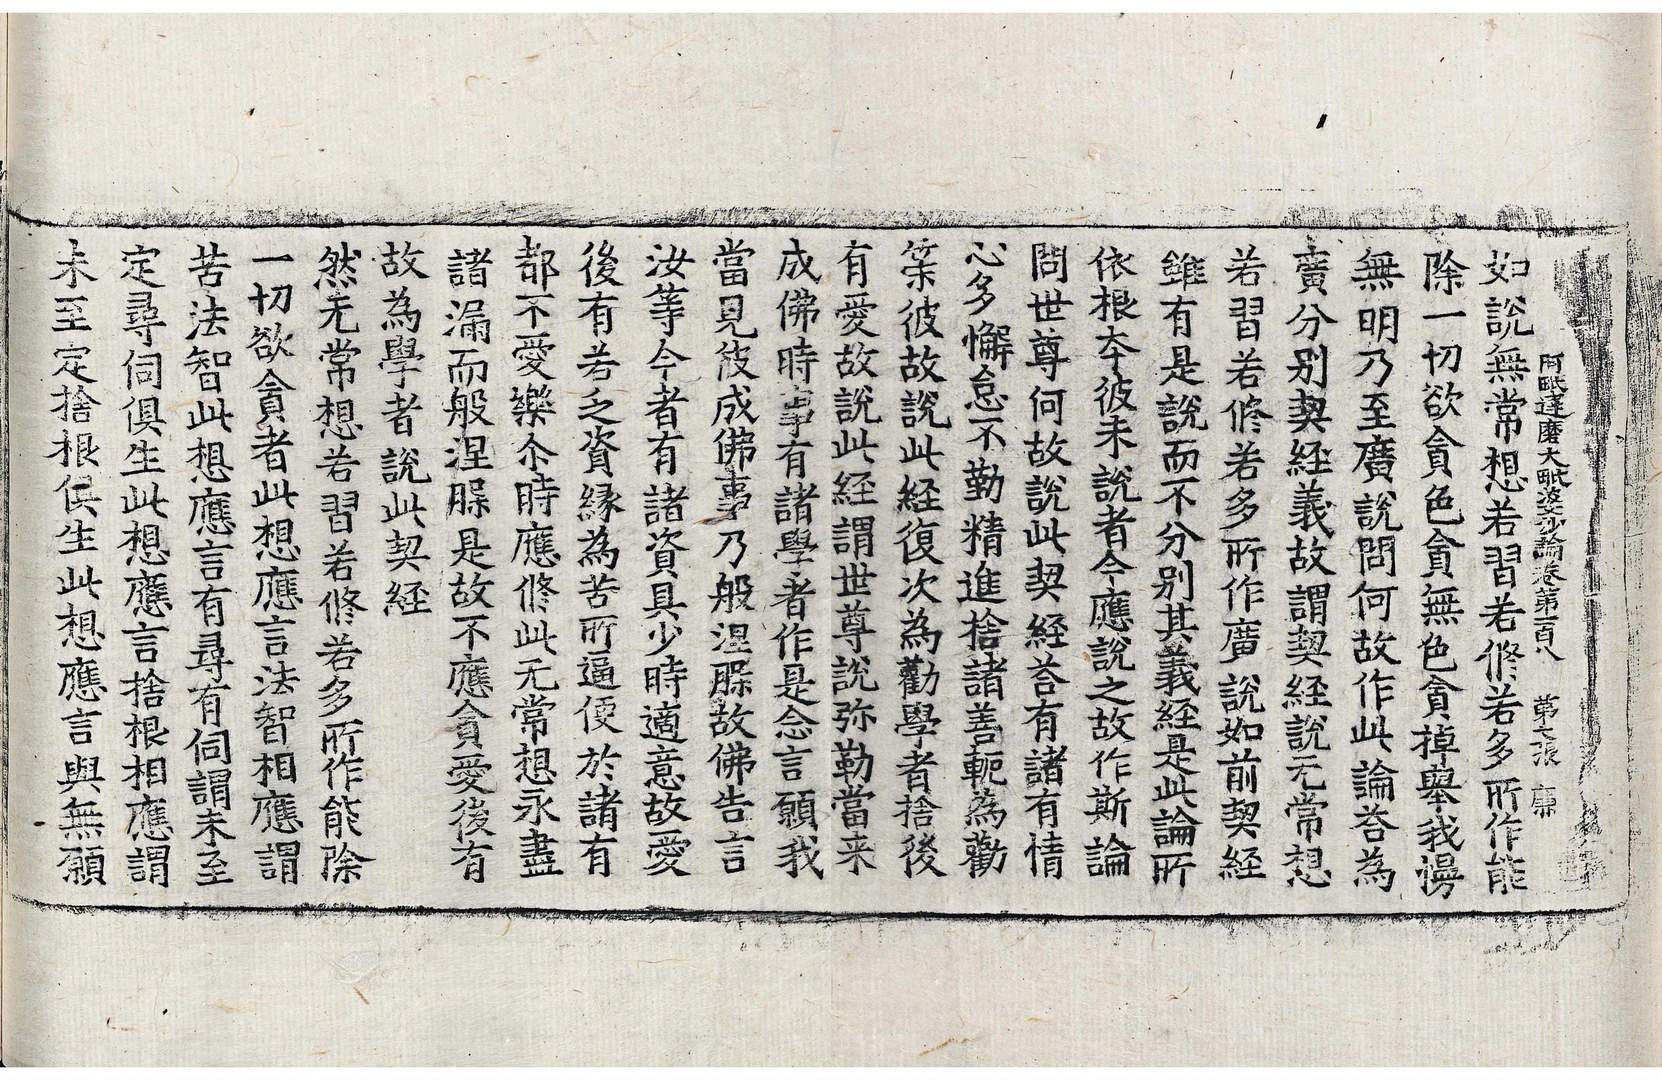 阿毗達磨大毗婆沙論卷第一百八　第七張　廉
如說無常想若習若修若多所作能
除一切欲貪色貪無色貪掉舉我慢
無明乃至廣說問何故作此論荅為
廣分别契經義故謂契經說无常想
若習若修若多所作廣說如前契經
雖有是說而不分别其義經是此論所
依根本彼未說者今應說之故作斯論
問世尊何故說此契經荅有諸有情
心多懈怠不勤精進捨諸善軛為勸
策彼故說此經復次為勸學者捨後
有愛故說此經謂世尊說弥勒當来
成佛時事有諸學者作是念言願我
當見彼成佛事乃般涅縣故佛告言
汝等今者有諸資具少時適意故愛
後有若乏資緣為苦所逼便於諸有
都不愛樂尒時應修此无常想永盡
諸漏而般涅縣是故不應貪愛後有
故為學者說此契經
然无常想若習若修若多所作能除
一切欲貪者此想應言法智相應謂
苦法智此想應言有尋有伺謂未至
定尋伺俱生此想應言捨根相應謂
未至定捨根俱生此想應言與無願